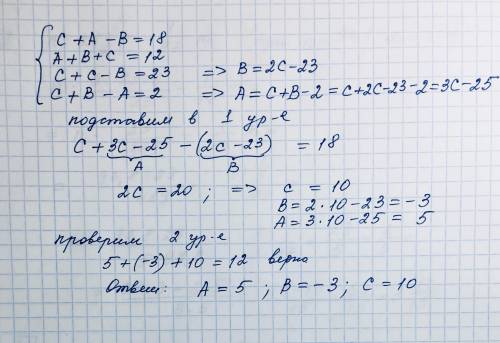 C + A - B = 18
A + B + C = 12
C + C - B = 23 => B = 2C - 23
C + B - A = 2 => A = C + B - 2 = C + 2C - 23 - 2 = 3C - 25
подставим в 1 ур-е
C + 3C - 25 - (2C - 23) = 18
A B
2C = 20 ; => C = 10
B = 2 · 10 - 23 = - 3
A = 3 · 10 - 25 = 5
проверим 2 ур-е
5 + (-3) + 10 = 12 верно
Ответ: A = 5 ; B = - 3 ; C = 10